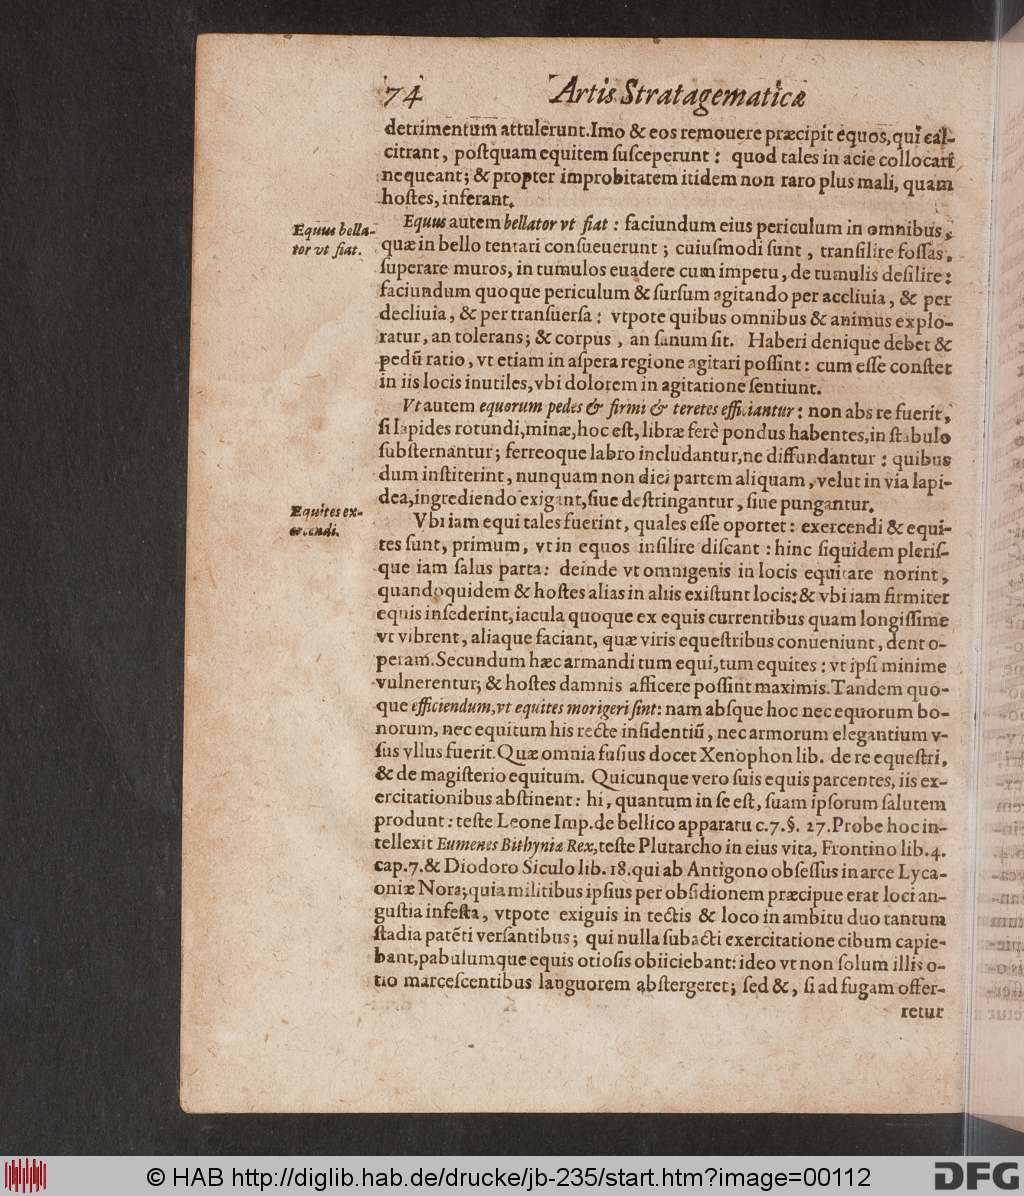 74 Artis Stratagematicæ
detrimentum attulerunt. Imo & eos remouere præcipit equos, qui cal-
citrant, poſtquam equitem ſuſceperunt: quod tales in acie collocari
nequeant; & propter improbitatem itidem non raro plus mali, quam
hoſtes, inferant.
Equus bella-
tor vt fiat.
Equus autem bellator vt fiat: faciundum eius periculum in omnibus,
quæ in bello tentari conſueuerunt; cuiuſmodi ſunt, tranſilire foſſas,
ſuperare muros, in tumulos euadere cum impetu, de tumulis deſilire:
faciundum quoque periculum & ſurſum agitando per accliuia, & per
decliuia, & per tranſuerſa: vtpote quibus omnibus & animus explo-
ratur, an tolerans; & corpus, an ſanum ſit. Haberi denique debet &
pedũ ratio, vt etiam in aſpera regione agitari poſſint: cum eſſe conſtet
in iis locis inutiles, vbi dolorem in agitatione ſentiunt.
Vt autem equorum pedes & firmi & teretes efficiantur: non abs re fuerit,
ſi lapides rotundi, minæ, hoc eſt, libræ ferè pondus habentes, in ſtabulo
ſubſternantur; ferreoque labro includantur, ne diffundantur: quibus
dum inſtiterint, nunquam non diei partem aliquam, velut in via lapi-
dea, ingrediendo exigant, ſiue deſtringantur, ſiue pungantur.
Equites ex-
ercendi.
Vbi iam equi tales fuerint, quales eſſe oportet: exercendi & equi-
tes ſunt, primum, vt in equos inſilire diſcant: hinc ſiquidem pleriſ-
que iam ſalus parta: deinde vt omnigenis in locis equitare norint,
quandoquidem & hoſtes alias in aliis exiſtunt locis: & vbi iam firmiter
equis inſederint, iacula quoque ex equis currentibus quam longiſſime
vt vibrent, aliaque faciant, quæ viris equeſtribus conueniunt, dent o-
peram. Secundum hæc armandi tum equi, tum equites: vt ipſi minime
vulnerentur; & hoſtes damnis afficere poſſint maximis. Tandem quo-
que efficiendum, vt equites morigeri ſint: nam abſque hoc nec equorum bo-
norum, nec equitum his recte inſidentiũ, nec armorum elegantium v-
ſus vllus fuerit. Quæ omnia fuſius docet Xenophon lib. de re equeſtri,
& de magiſterio equitum. Quicunque vero ſuis equis parcentes, iis ex-
ercitationibus abſtinent: hi, quantum in ſe eſt, ſuam ipſorum ſalutem
produnt: teſte Leone Imp. de bellico apparatu c. 7. §. 27. Probe hoc in-
tellexit Eumenes Bithyniæ Rex, teſte Plutarcho in eius vita, Frontino lib. 4.
cap. 7. & Diodoro Siculo lib. 18. qui ab Antigono obſeſſus in arce Lyca-
oniæ Nora; quia militibus ipſius per obſidionem præcipue erat loci an-
guſtia infeſta, vtpote exiguis in tectis & loco in ambitu duo tantum
ſtadia patẽti verſantibus; qui nulla ſubacti exercitatione cibum capie-
bant, pabulumque equis otioſis obiiciebant: ideo vt non ſolum illis o-
tio marceſcentibus languorem abſtergeret; ſed &, ſi ad fugam offer-
retur
© HAB http://diglib.hab.de/drucke/jb-235/start.htm?image=00112
DFG